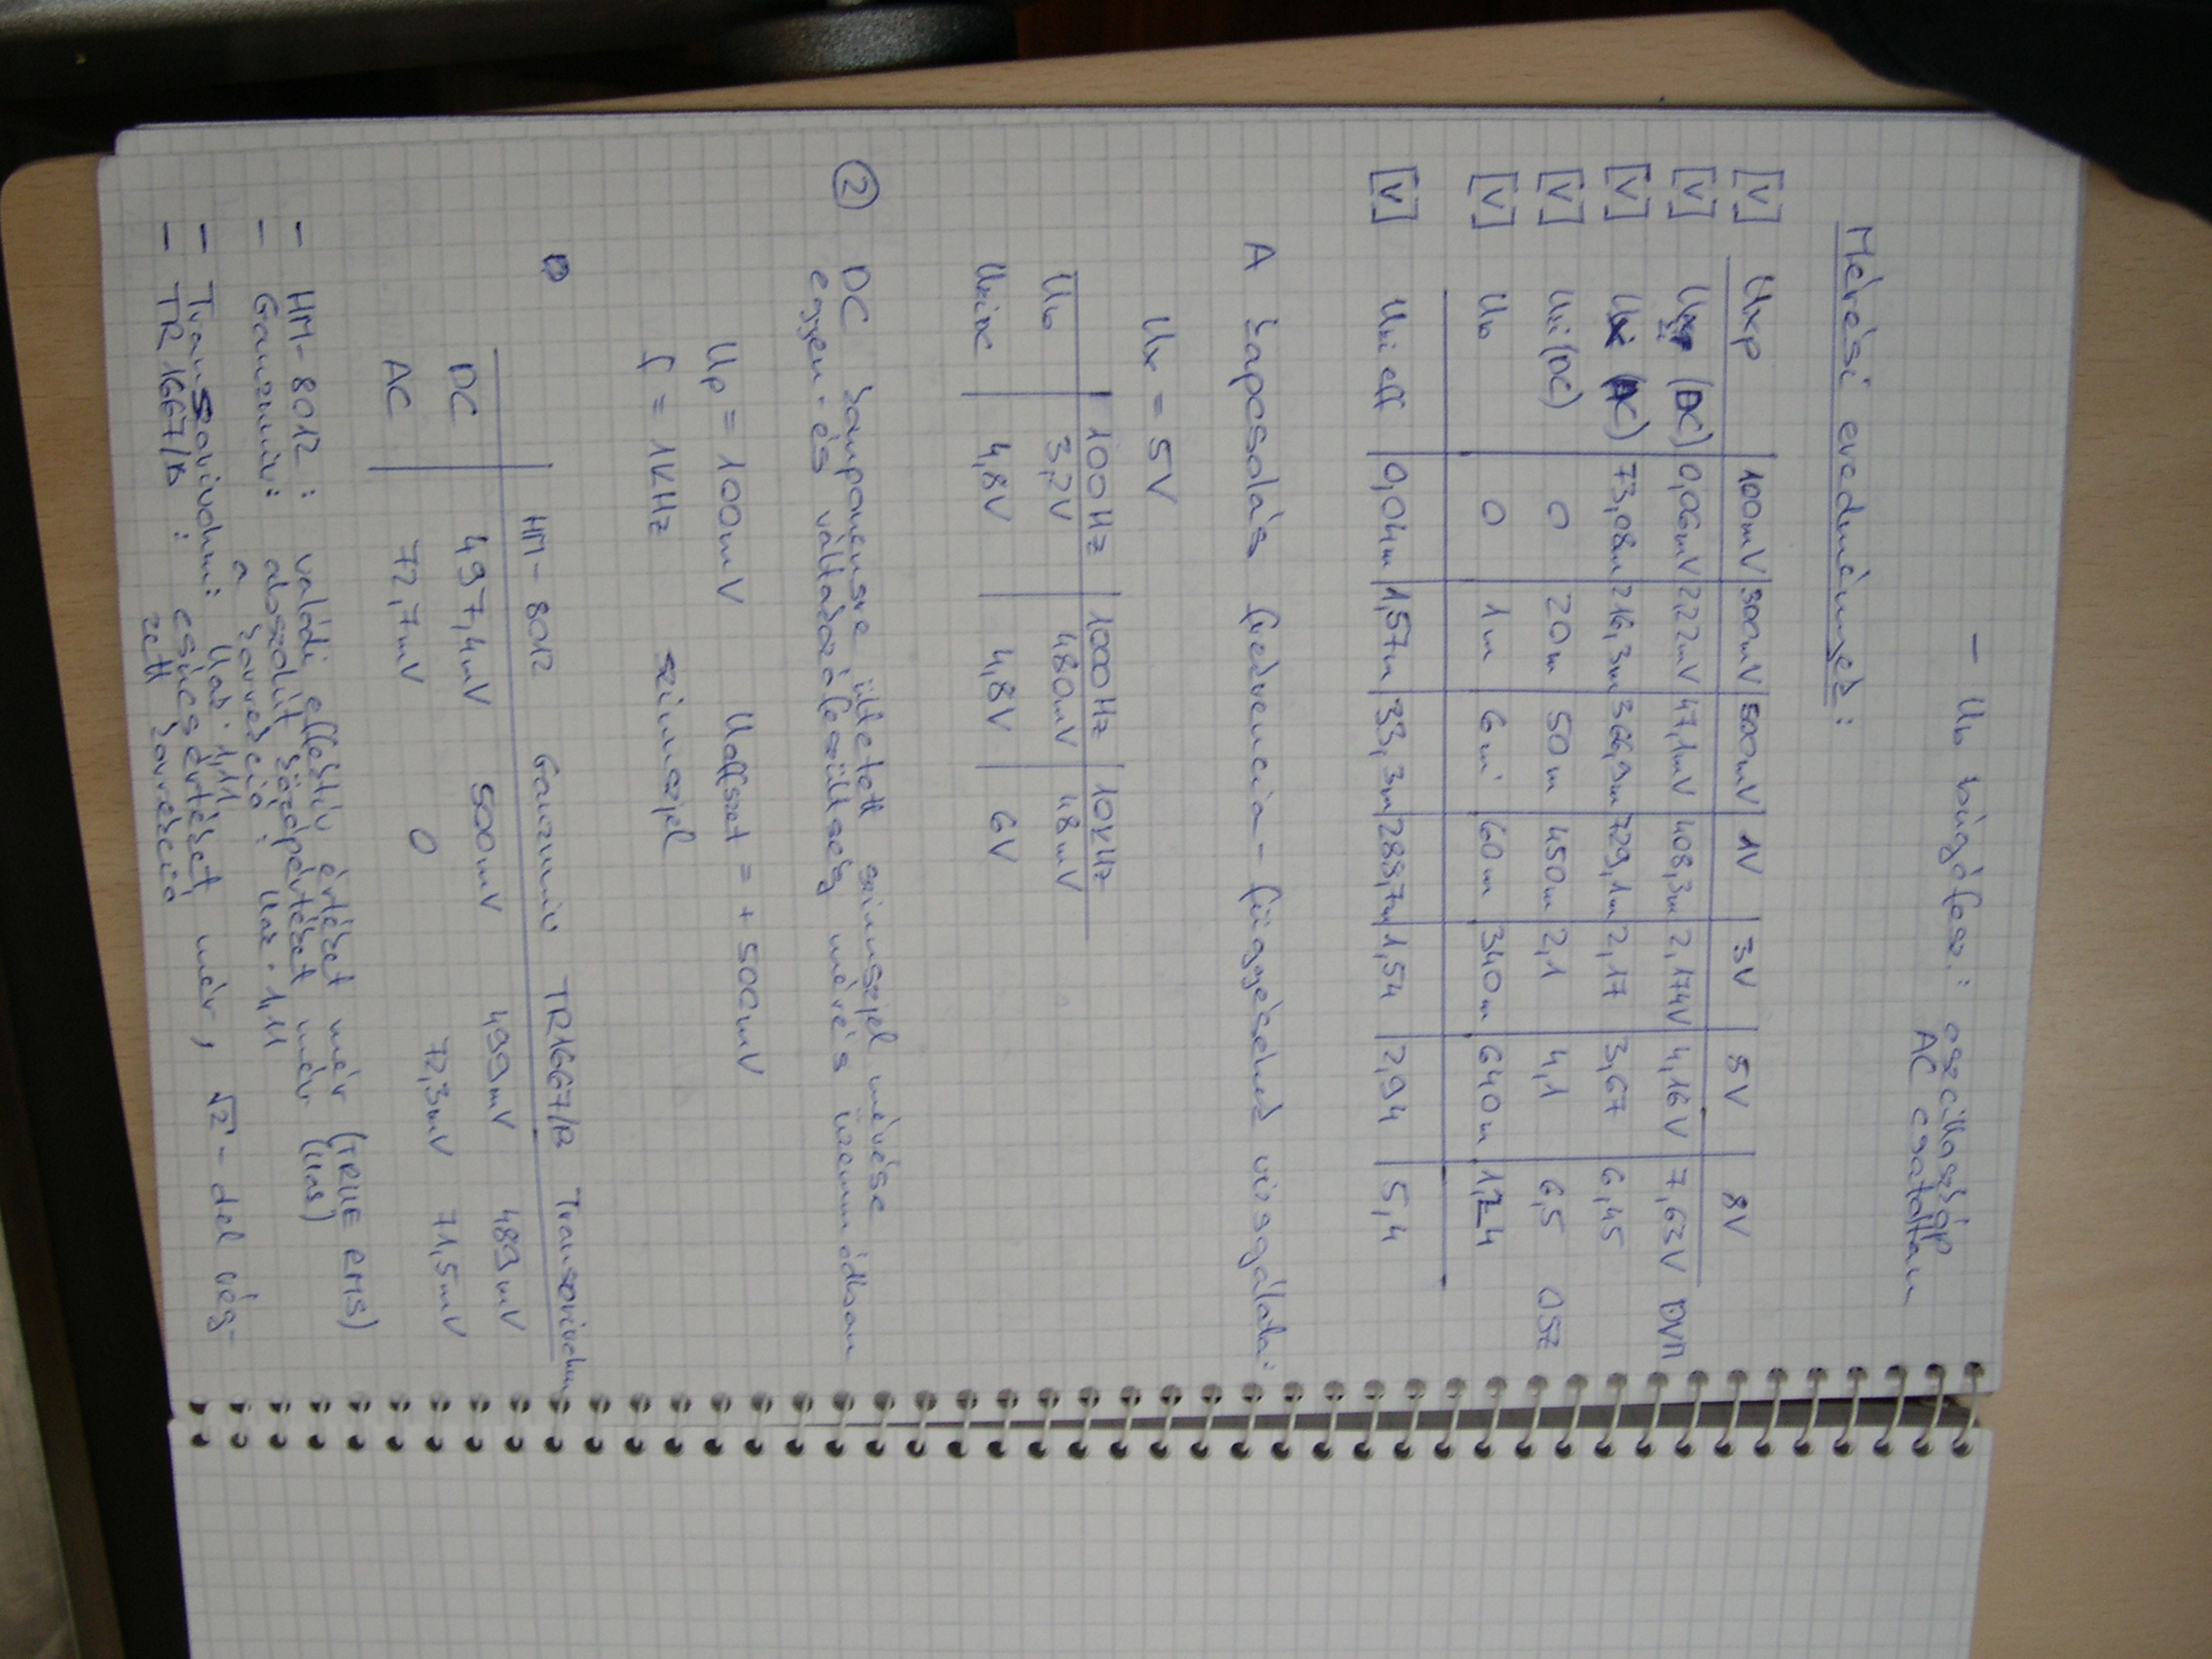 - Ub búgófesz.: oszcilloszkóp
AC csatoltan
Mérési eredmények:
[V] Uxp 100mV 300mV 500mV 1V 3V 5V 8V
[V] (DC) 0,06mV 2,22mV 47,1mV 408,3m 2,174V 4,16V 7,63V DVM
[V] (AC) 73,08m 216,3m 366,9m 729,1m 2,17 3,67 6,45
[V] Uki (DC) 0 20m 50m 450m 2,1 4,1 6,5 OSZ
[V] Ub 0 1m 6m 60m 340m 640m 1,24
[V] Uki eff 0,04m 1,57m 33,3m 288,7m 1,54 2,94 5,4
A kapcsolás frekvencia-függésének vizsgálata:
Ux = 5V
100Hz 1000Hz 10kHz
Ub 3,2V 480mV 48mV
UkiDC 4,8V 4,8V 6V
② DC komponensre ültetett szinuszjel mérése
egyen- és váltakozófeszültség mérés üzemmódban
Up = 100mV Uoffszet = +500mV
f = 1kHz szinuszjel
HM-8012 Ganzuniv TR1667/B Transorivohm
DC 497,4mV 500mV 499mV 489mV
AC 72,7mV 0 72,3mV 71,5mV
- HM-8012: valódi effektív értéket mér (TRUE RMS)
- Ganzuniv: abszolút középértéket mér
a korrekció: 1,11
- Transorivohm: 1,11
- TR 1667/B: csúcsértéket mér, √2-del vég-
zett korrekció